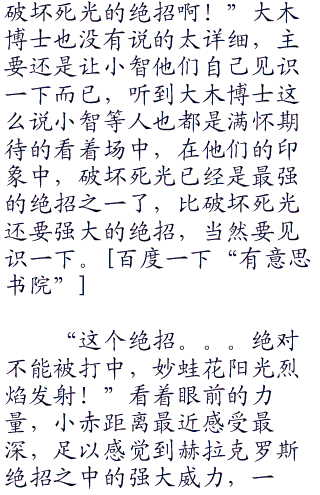 破坏死光的绝招啊！”大木
博士也没有说的太详细，主
要还是让小智他们自己见识
一下而已，听到大木博士这
么说小智等人也都是满怀期
待的看着场中，在他们的印
象中，破坏死光已经是最强
的绝招之一了，比破坏死光
还要强大的绝招，当然要见
识一下。[百度一下“有意思
书院”]
“这个绝招。。。绝对
不能被打中，妙蛙花阳光烈
焰发射！”看着眼前的力
量，小赤距离最近感受最
深，足以感觉到赫拉克罗斯
绝招之中的强大威力，一